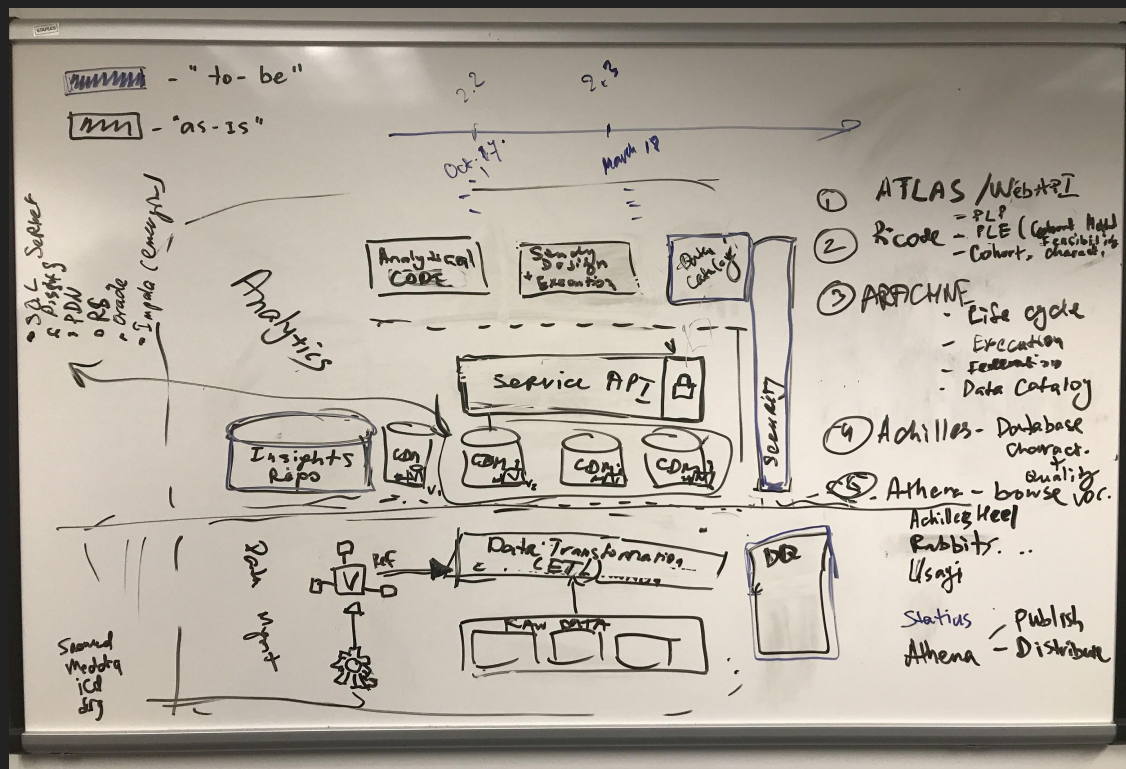 STAPLES
- "to-be"
- "as-is"
2.2
2.3
Oct. 17.
March 18
• SQL Server
• PDW
• RS
• Oracle
• Impala (emerging)
Analytics
Analytical
CODE
Study
Design
+ Execution
Data
Catalog
Security
Service API
Insights
Repo
CDM
V1
CDM
CDM
CDM
Data Mgmt
V
Ref
Data Transformation
(ETL)
RAW DATA
DQ
Snomed
Meddra
iCd
① ATLAS / WebAPI
② R code
- PLP
- PLE (Cohort
Feasibility
- Cohort. Charact.
③ ARACHNE
- Life cycle
- Execution
- Federation
- Data Catalog
④ Achilles - Database
Charact.
+
Quality
⑤. Athena - browse voc.
Achilles Heel
Rabbits...
Usagi
Status
Athena
- Publish
- Distribute